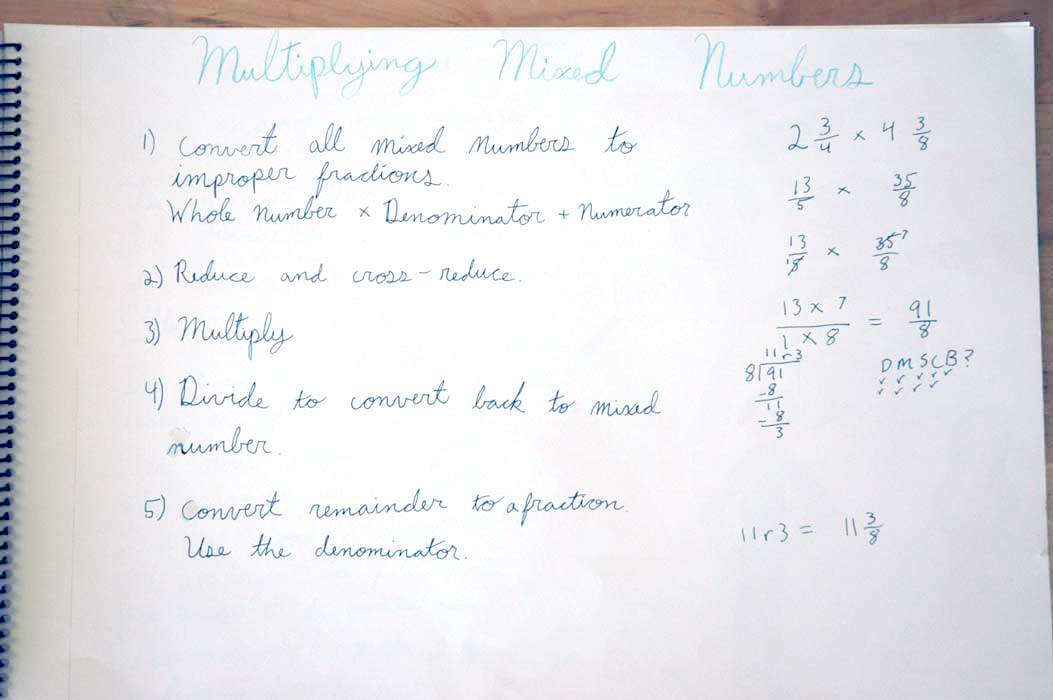 Multiplying Mixed Numbers
1) Convert all mixed numbers to
improper fractions.
Whole number × Denominator + Numerator
2) Reduce and cross-reduce.
3) Multiply
4) Divide to convert back to mixed
number.
5) Convert remainder to a fraction.
Use the denominator.
2 3/4 × 4 3/8
13/5 × 35/8
13/1 5 × 35 7/8
13 × 7 / 1 × 8 = 91/8
11r3
8)91
-8
11
-8
3
DMSCB?
✓ ✓ ✓ ✓ ✓
✓ ✓ ✓ ✓
11r3 = 11 3/8